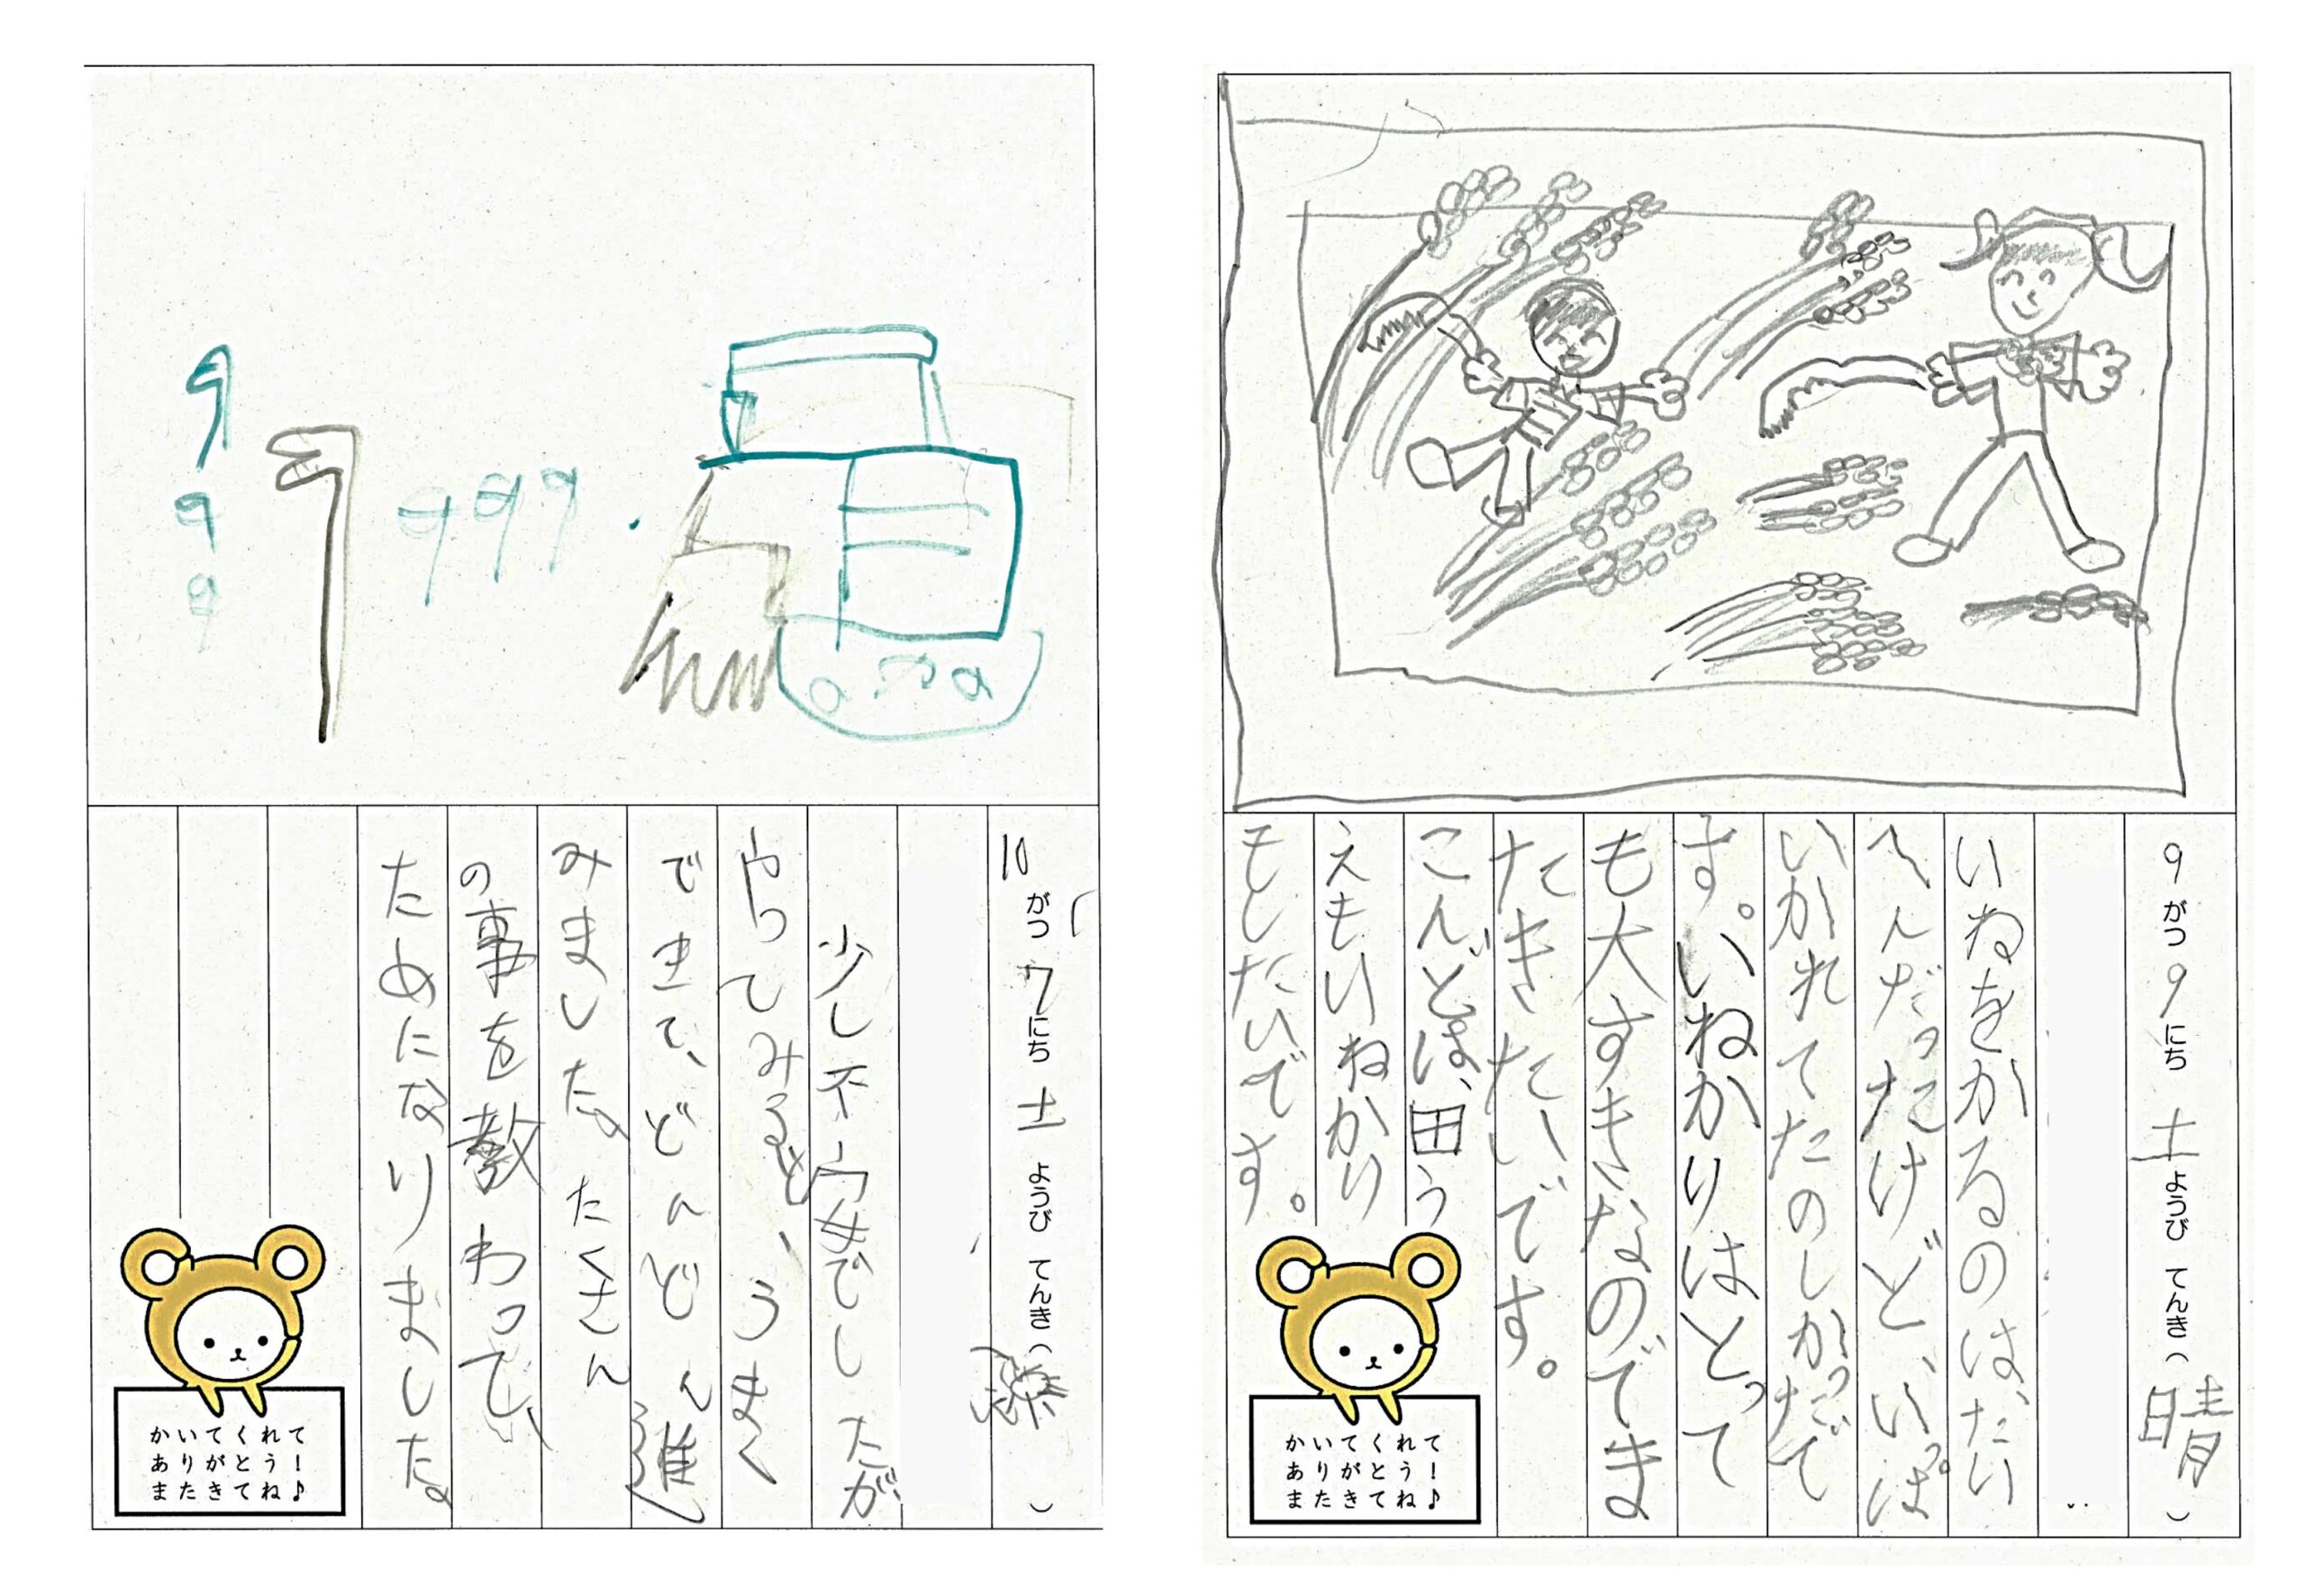 9がつ9にち 土ようび てんき(晴)
いねをかるのは、たい
へんだったけど、いっぱ
いかれてたのしかったで
す。いねかりはとって
も大すきなのでま
たきたいです。
こんどは、田う
えもいねかり
もしたいです。
かいてくれて
ありがとう!
またきてね♪
10がつ7にち 土ようび てんき( )
少し不安でしたが、
やってみると、うまく
できて、どんどん進
みました。たくさん
の事を教わって、
ためになりました。
かいてくれて
ありがとう!
またきてね♪